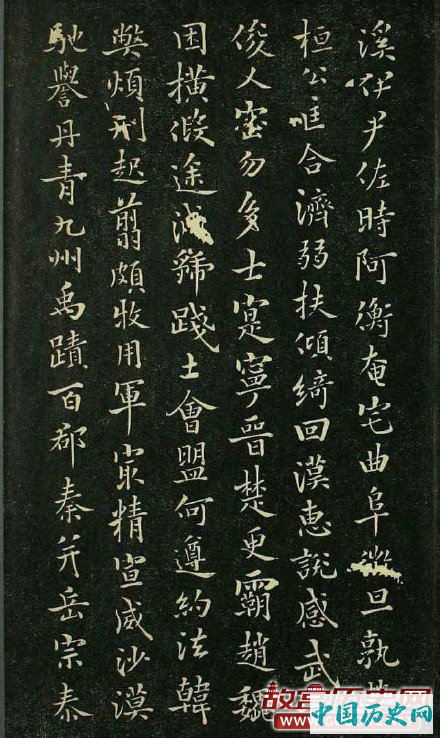 溪伊尹佐時阿衡奄宅曲阜微旦孰
桓公匡合濟弱扶傾綺回漢惠說感武
俊乂密勿多士寔寧晉楚更霸趙魏
困橫假途滅虢踐土會盟何遵約法韓
弊煩刑起翦頗牧用軍㝡精宣威沙漠
馳譽丹青九州禹蹟百郡秦并岳宗泰
中国历史网